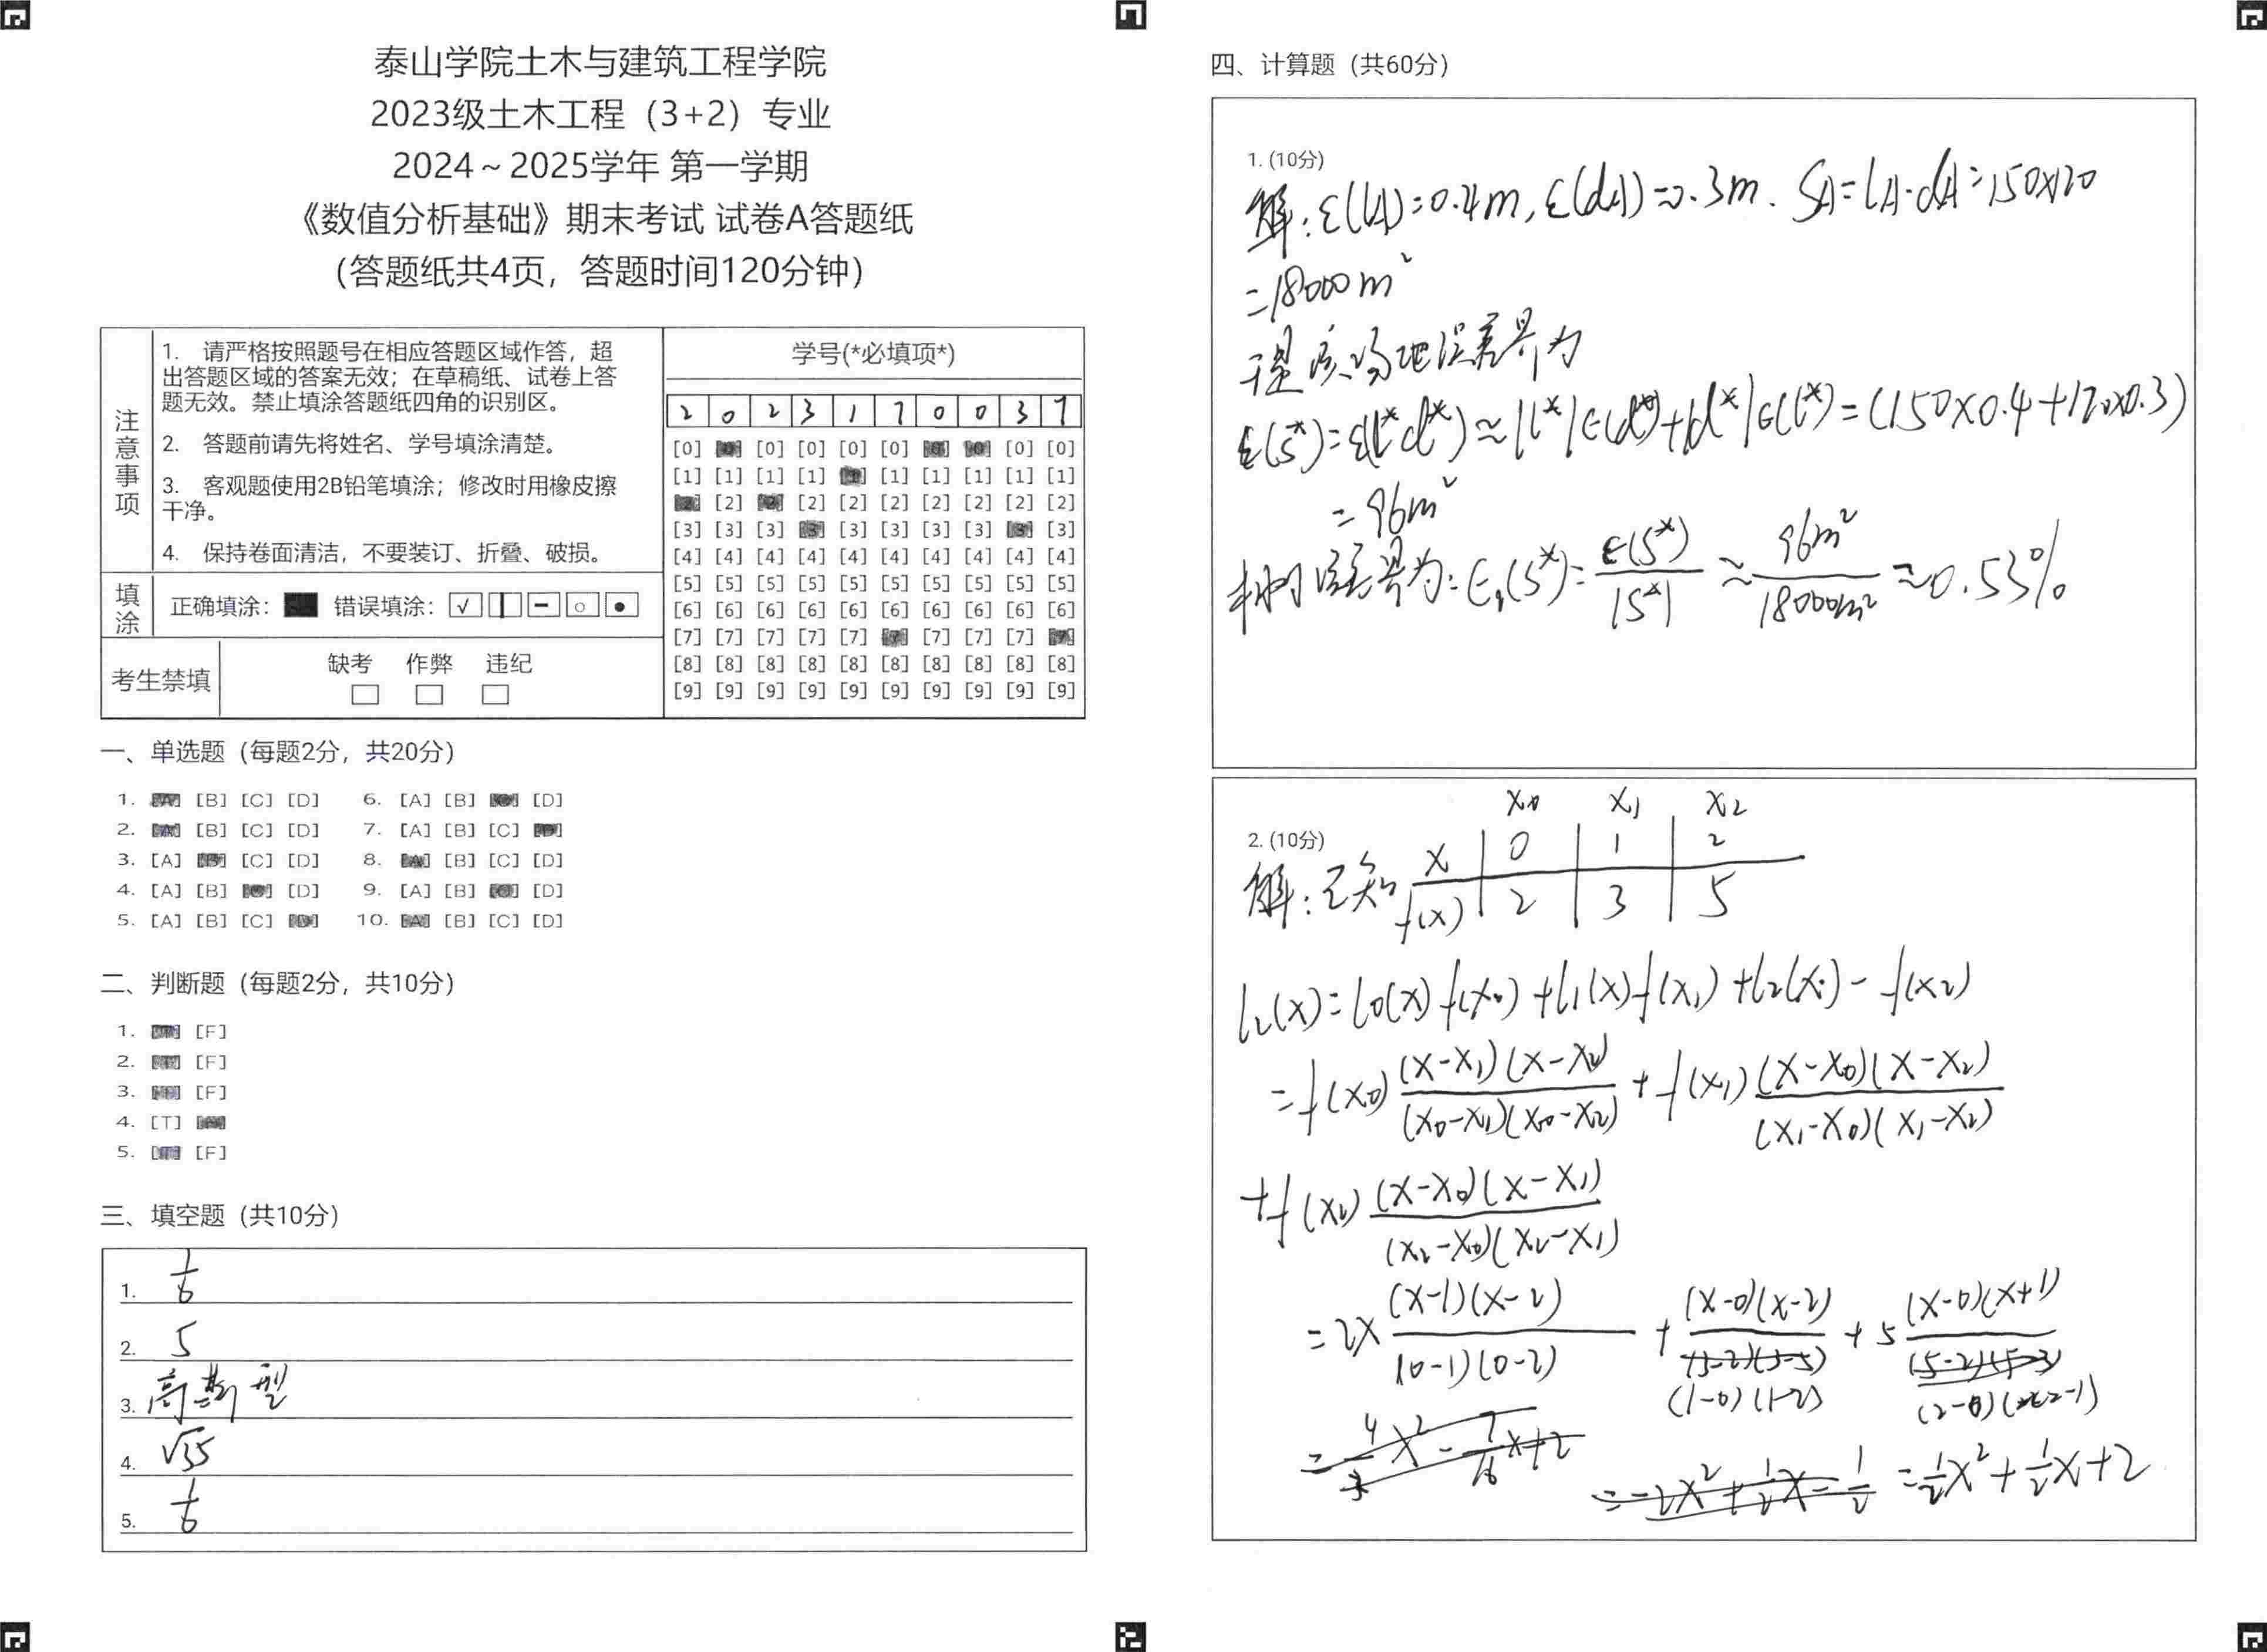 泰山学院土木与建筑工程学院
2023级土木工程（3+2）专业
2024～2025学年 第一学期
《数值分析基础》期末考试 试卷A答题纸
（答题纸共4页，答题时间120分钟）
注意事项
1. 请严格按照题号在相应答题区域作答，超
出答题区域的答案无效；在草稿纸、试卷上答
题无效。禁止填涂答题纸四角的识别区。
2. 答题前请先将姓名、学号填涂清楚。
3. 客观题使用2B铅笔填涂；修改时用橡皮擦
干净。
4. 保持卷面清洁，不要装订、折叠、破损。
填涂
正确填涂： 错误填涂：
考生禁填
缺考 作弊 违纪
学号(*必填项*)
2 0 2 3 1 7 0 0 3 7
[0] [0] [0] [0] [0] [0] [0] [0] [0] [0]
[1] [1] [1] [1] [1] [1] [1] [1] [1] [1]
[2] [2] [2] [2] [2] [2] [2] [2] [2] [2]
[3] [3] [3] [3] [3] [3] [3] [3] [3] [3]
[4] [4] [4] [4] [4] [4] [4] [4] [4] [4]
[5] [5] [5] [5] [5] [5] [5] [5] [5] [5]
[6] [6] [6] [6] [6] [6] [6] [6] [6] [6]
[7] [7] [7] [7] [7] [7] [7] [7] [7] [7]
[8] [8] [8] [8] [8] [8] [8] [8] [8] [8]
[9] [9] [9] [9] [9] [9] [9] [9] [9] [9]
一、单选题（每题2分，共20分）
1. [A] [B] [C] [D] 6. [A] [B] [C] [D]
2. [A] [B] [C] [D] 7. [A] [B] [C] [D]
3. [A] [B] [C] [D] 8. [A] [B] [C] [D]
4. [A] [B] [C] [D] 9. [A] [B] [C] [D]
5. [A] [B] [C] [D] 10. [A] [B] [C] [D]
二、判断题（每题2分，共10分）
1. [T] [F]
2. [T] [F]
3. [T] [F]
4. [T] [F]
5. [T] [F]
三、填空题（共10分）
1. 1/6
2. 5
3. 高斯型
4. √35
5. 1/6
四、计算题（共60分）
1. (10分)
解: ε(lA)=0.4m, ε(dA)=0.3m. SA=lA·dA=150×120
=18000m²
理该场地误差界为
ε(s*)=ε(l*d*)≈|l*|ε(d*)+|d*|ε(l*)=(150×0.4+120×0.3)
=96m²
相对误差界为: εr(s*)=ε(s*)/|s*|≈96m²/18000m²≈0.53%
2. (10分)
x0 x1 x2
解: 已知 x 0 1 2
f(x) 2 3 5
l2(x)=l0(x)f(x0)+l1(x)f(x1)+l2(x)-f(x2)
=f(x0)(x-x1)(x-x2)/(x0-x1)(x0-x2)+f(x1)(x-x0)(x-x2)/(x1-x0)(x1-x2)
+f(x2)(x-x0)(x-x1)/(x2-x0)(x2-x1)
=2×(x-1)(x-2)/(0-1)(0-2)+(x-0)(x-2)/(1-0)(1-2)+5(x-0)(x+1)/(2-0)(2-1)
=1/2x²+1/2x+2